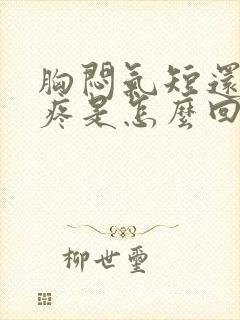 胸悶氣短還
疼是怎麼回
柳世璽